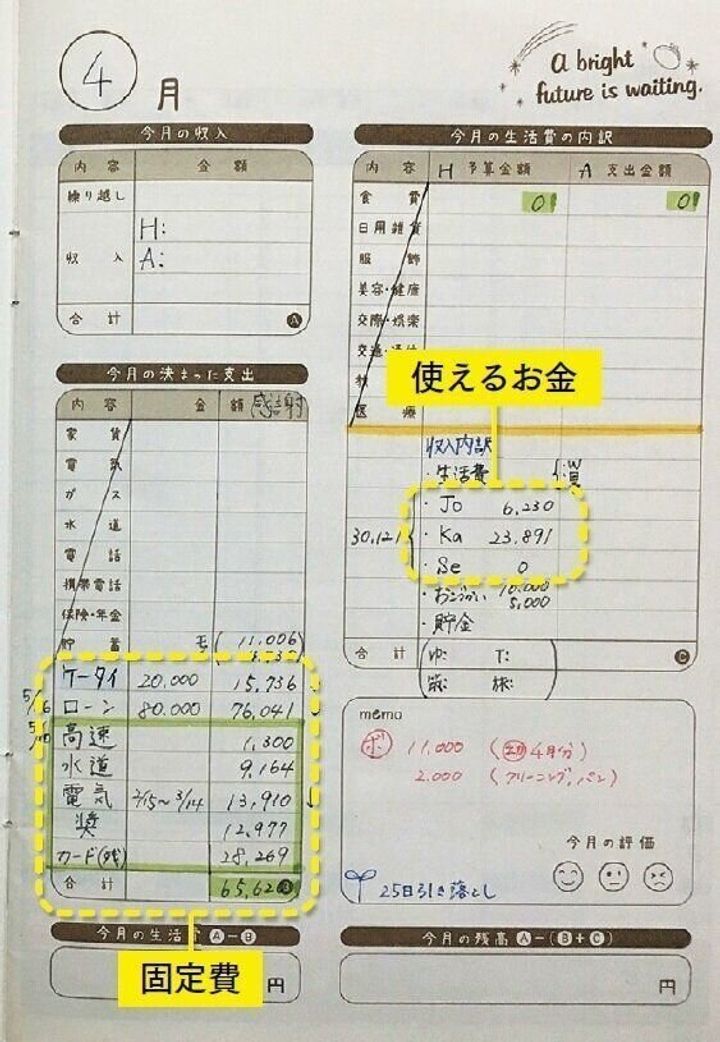 4月
A bright
future is waiting.
今月の収入
内容 金額
繰り越し
H:
収入 A:
合計 A
今月の決まった支出
内容 金額 感謝
家賃
電気
ガス
水道
電話
携帯電話
保険・年金
貯蓄 (11,006)
ケータイ 20.000 15,736
ローン 80.000 76,041
高速 1,300
水道 9,164
電気 2/15~3/14 13,910
奨 12,977
カード(残) 28,269
合計 65,62
固定費
今月の生活費 A-B
円
今月の生活費の内訳
内容 H 予算金額 A 支出金額
食費 0 0
日用雑貨
服飾
美容・健康
交際・娯楽
交通・通信
医療
使えるお金
収入内訳
・生活費
30,121
・Jo 6,230
・Ka 23,891
・Se 0
・おこづかい 10,000
5,000
・貯金
合計 C
ゆ: T:
旅:
memo
ボ 11,000 (4月分)
2.000 (クリーニング、パン)
今月の評価
25日引き落とし
今月の残高 A-(B+C)
円